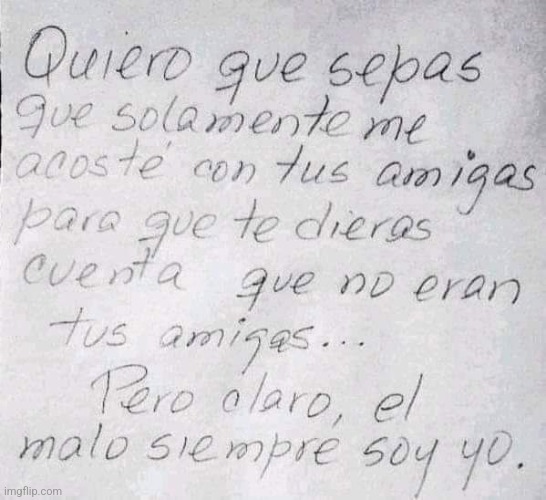 Quiero que sepas
que solamente me
acosté con tus amigas
para que te dieras
cuenta que no eran
tus amigas...
Pero claro, el
malo siempre soy yo.
imgflip.com